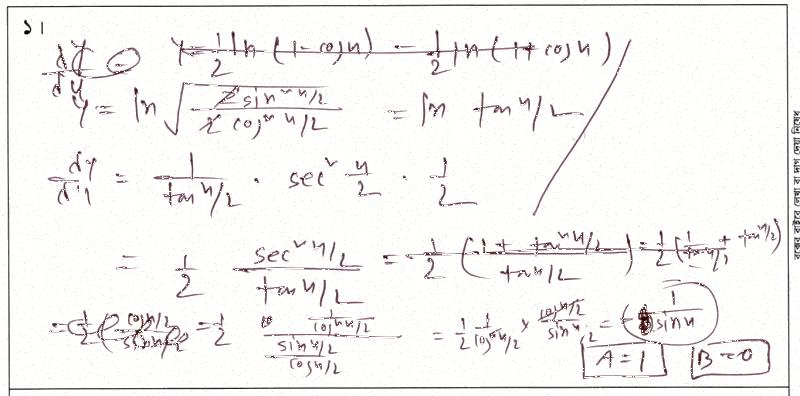 ১।
dy/dx = y = 1/2 ln (1 - cosx) - 1/2 ln (1 + cosx)
y = ln √(2 sin² x/2 / 2 cos² x/2) = ln tan x/2
dy/dx = 1/(tan x/2) · sec² x/2 · 1/2
= 1/2 (sec² x/2)/(tan x/2) = 1/2 ((1 + tan² x/2)/(tan x/2)) = 1/2 (1/(tan x/2) + tan x/2)
= 1/2 (1/(cos² x/2))/((sin x/2)/(cos x/2)) = 1/2 1/(cos² x/2) × (cos x/2)/(sin x/2) = 1/(sin x)
A = 1 B = 0
বক্সের বাইরে লেখা বা দাগ দেয়া নিষেধ